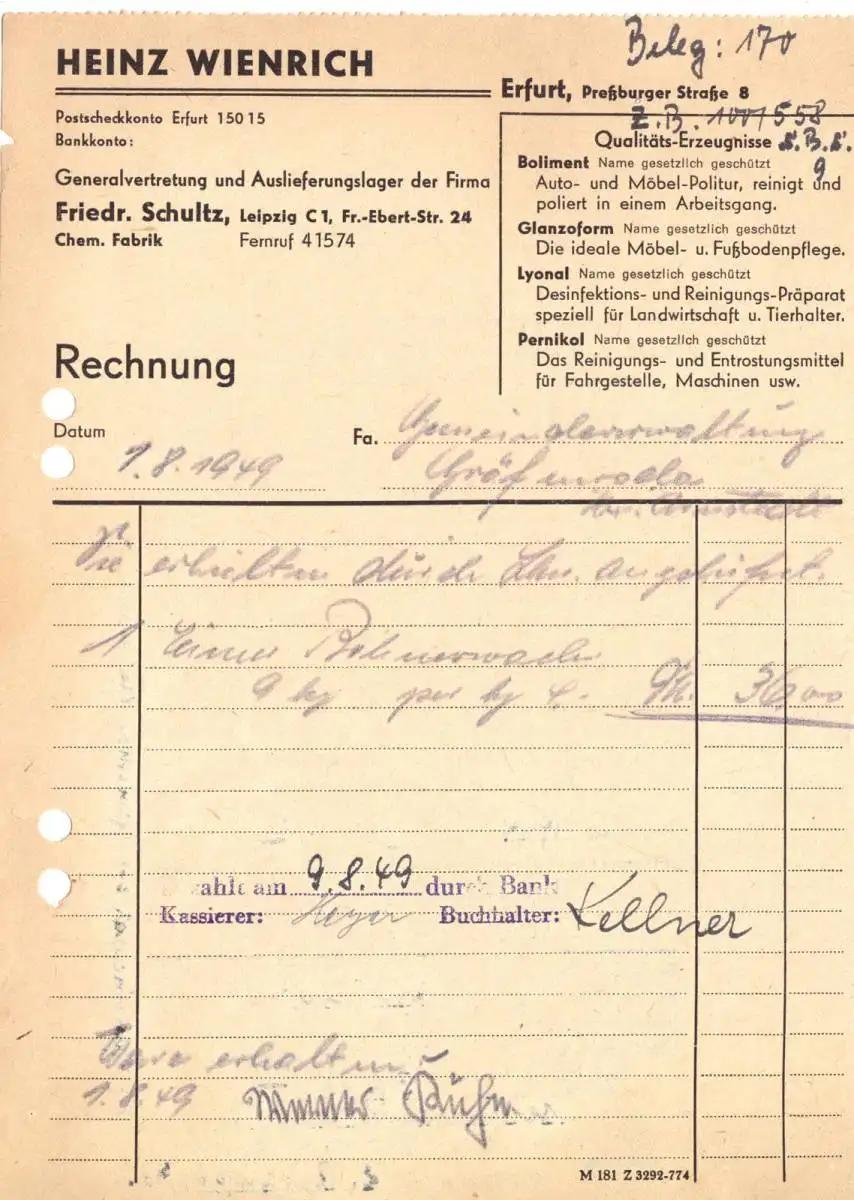 Beleg: 170
HEINZ WIENRICH
Erfurt, Preßburger Straße 8
Postscheckkonto Erfurt 150 15
Bankkonto:
Z.B. 100/558
Qualitäts-Erzeugnisse
Generalvertretung und Auslieferungslager der Firma
Friedr. Schultz, Leipzig C 1, Fr.-Ebert-Str. 24
Chem. Fabrik Fernruf 41574
Boliment Name gesetzlich geschützt
Auto- und Möbel-Politur, reinigt und
poliert in einem Arbeitsgang.
Glanzoform Name gesetzlich geschützt
Die ideale Möbel- u. Fußbodenpflege.
Lyonal Name gesetzlich geschützt
Desinfektions- und Reinigungs-Präparat
speziell für Landwirtschaft u. Tierhalter.
Pernikol Name gesetzlich geschützt
Das Reinigungs- und Entrostungsmittel
für Fahrgestelle, Maschinen usw.
Rechnung
Datum 1.8.1949
Fa. Gemeindeverwaltung
Gräfenroda
Kr. Arnstadt
Sie erhielten durch Lkw. angeliefert.
1 Eimer Bohnerwachs
9 kg per kg 4.- 36,00
zahlt am 9.8.49 durch Bank
Kassierer: Heyer Buchhalter: Kellner
Ware erhalten
1.8.49
M 181 Z 3292-774